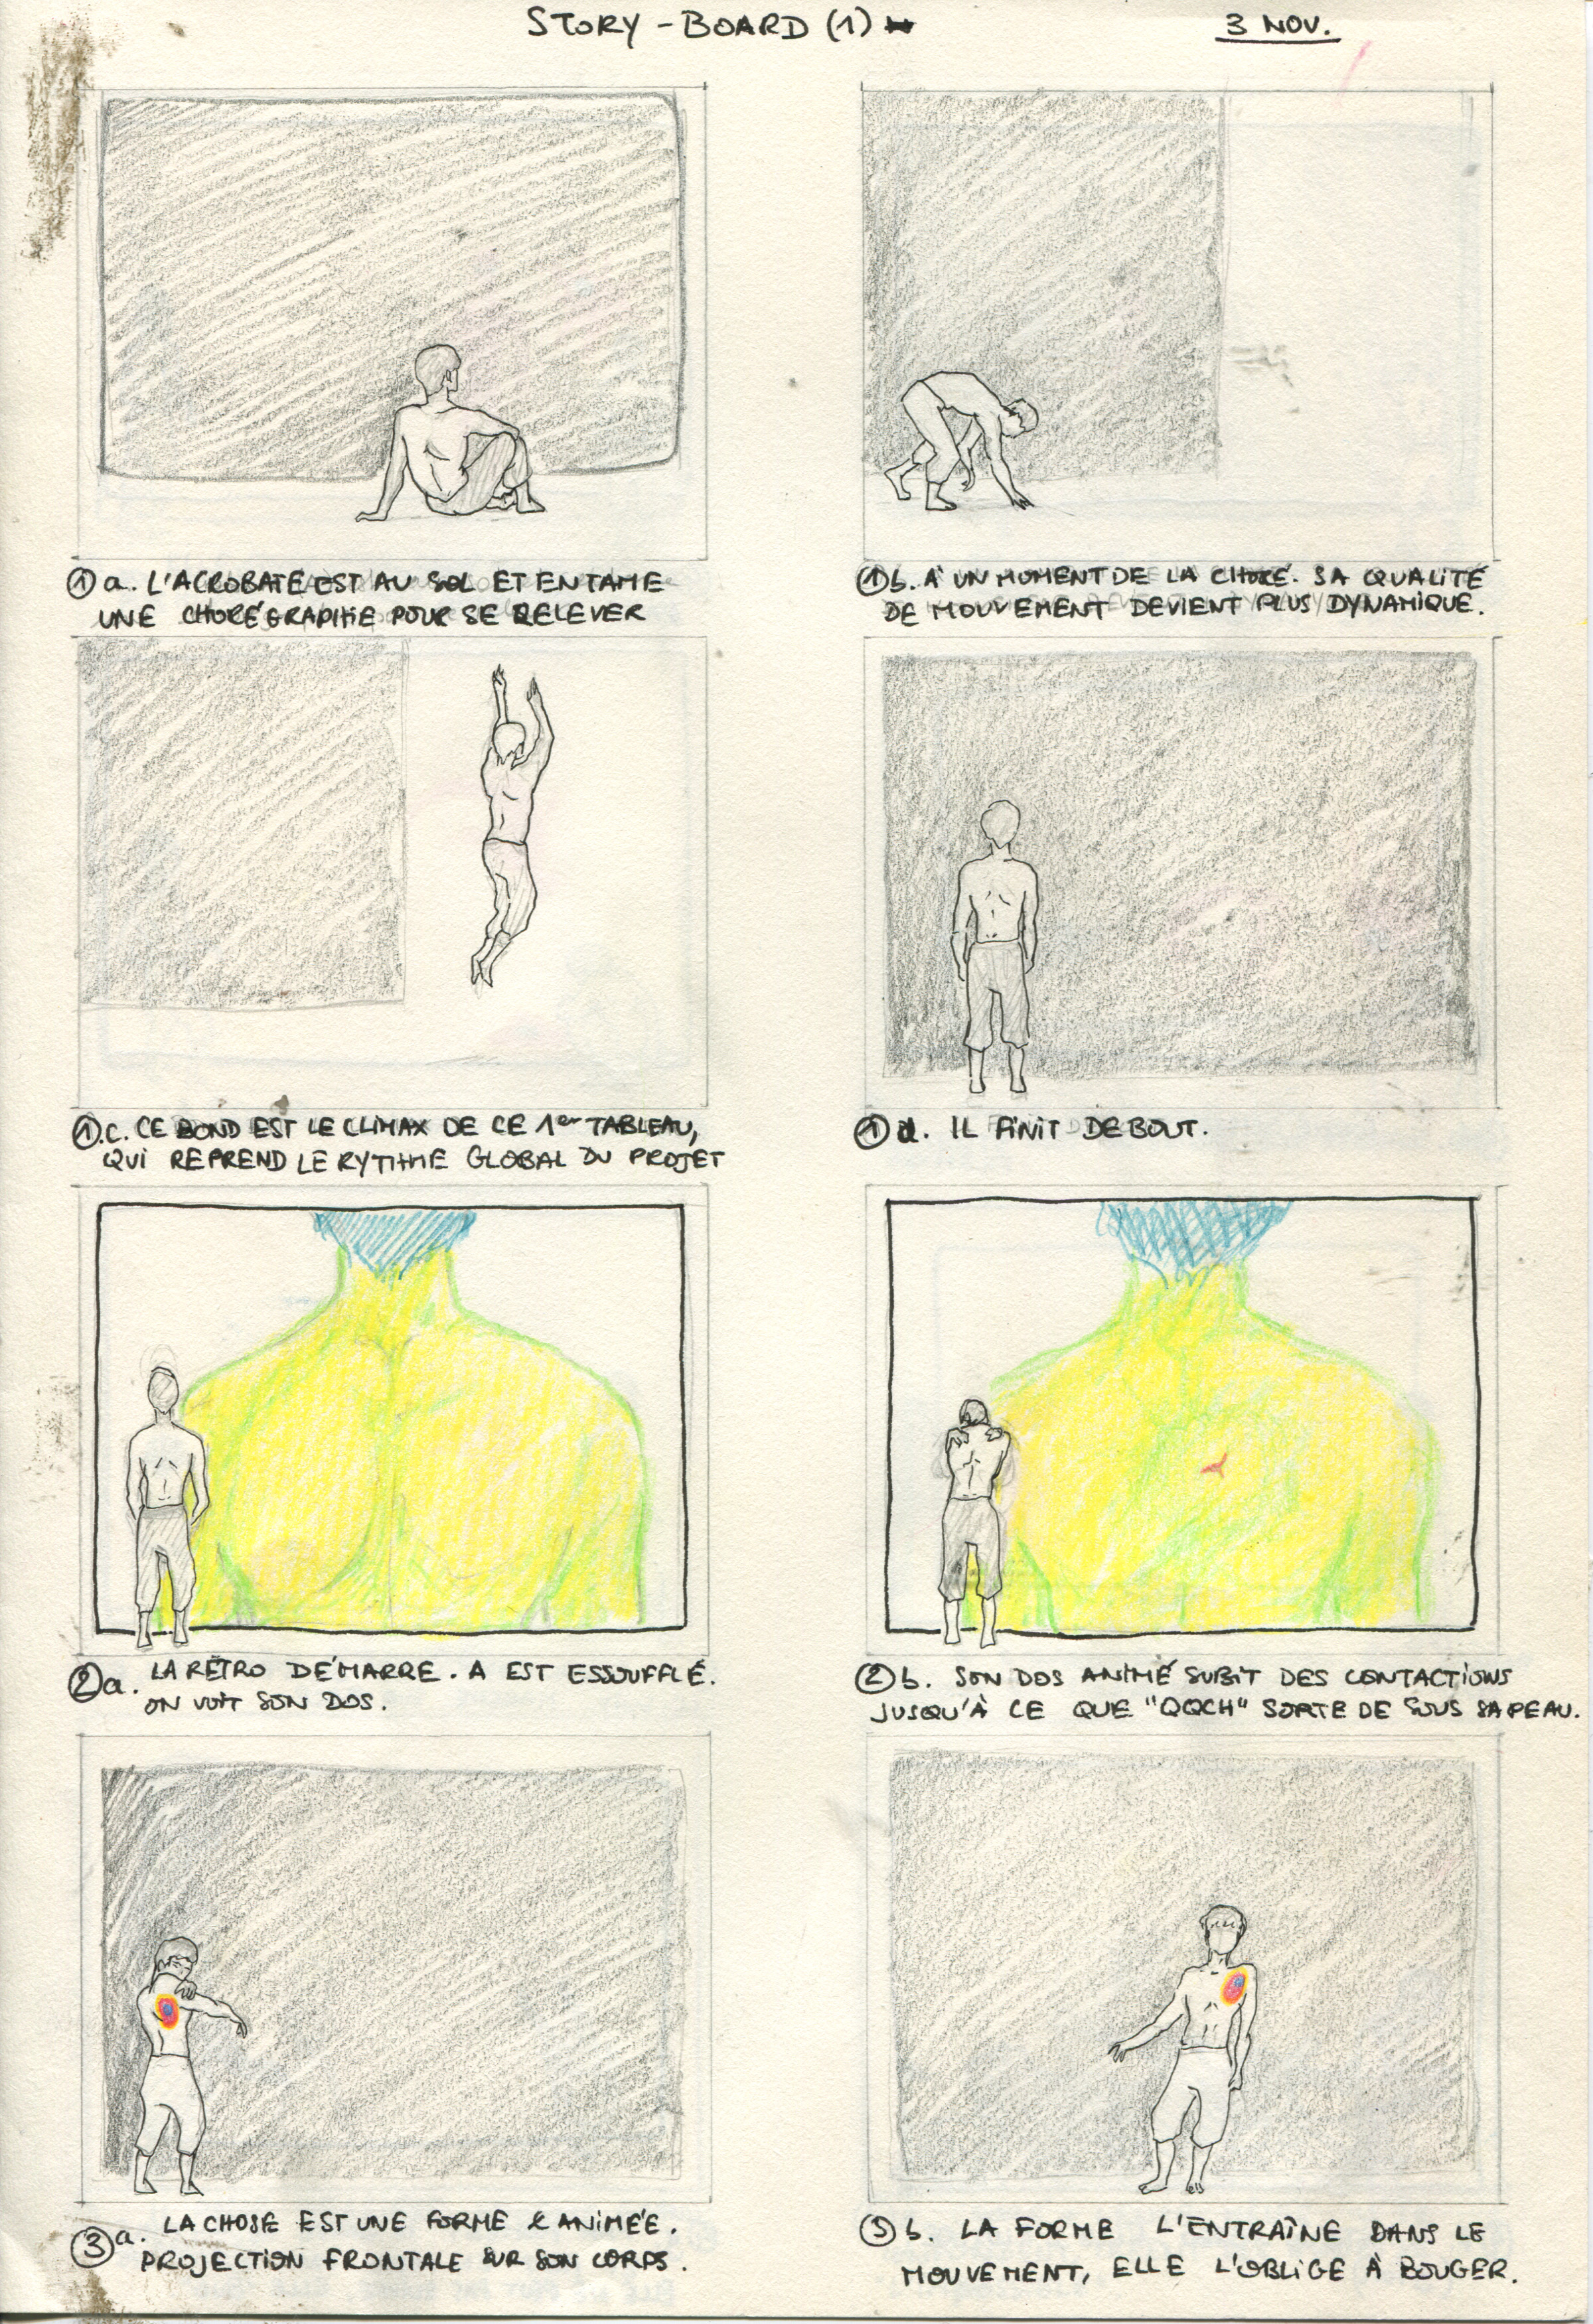 STORY-BOARD (1)
3 NOV.
1 a. L'ACROBATE EST AU SOL ET ENTAME
UNE CHORÉGRAPHIE POUR SE RELEVER
1 b. À UN MOMENT DE LA CHORÉ. SA QUALITÉ
DE MOUVEMENT DEVIENT PLUS DYNAMIQUE.
1.c. CE BOND EST LE CLIMAX DE CE 1er TABLEAU,
QUI REPREND LE RYTHME GLOBAL DU PROJET
1 d. IL FINIT DEBOUT.
2 a. LA RÉTRO DÉMARRE. A EST ESSOUFFLÉ.
ON VOIT SON DOS.
2 b. SON DOS ANIMÉ SUBIT DES CONTACTIONS
JUSQU'À CE QUE "QQCH" SORTE DE SOUS SA PEAU.
3 a. LA CHOSE EST UNE FORME ANIMÉE.
PROJECTION FRONTALE SUR SON CORPS.
3 b. LA FORME L'ENTRAÎNE DANS LE
MOUVEMENT, ELLE L'OBLIGE À BOUGER.